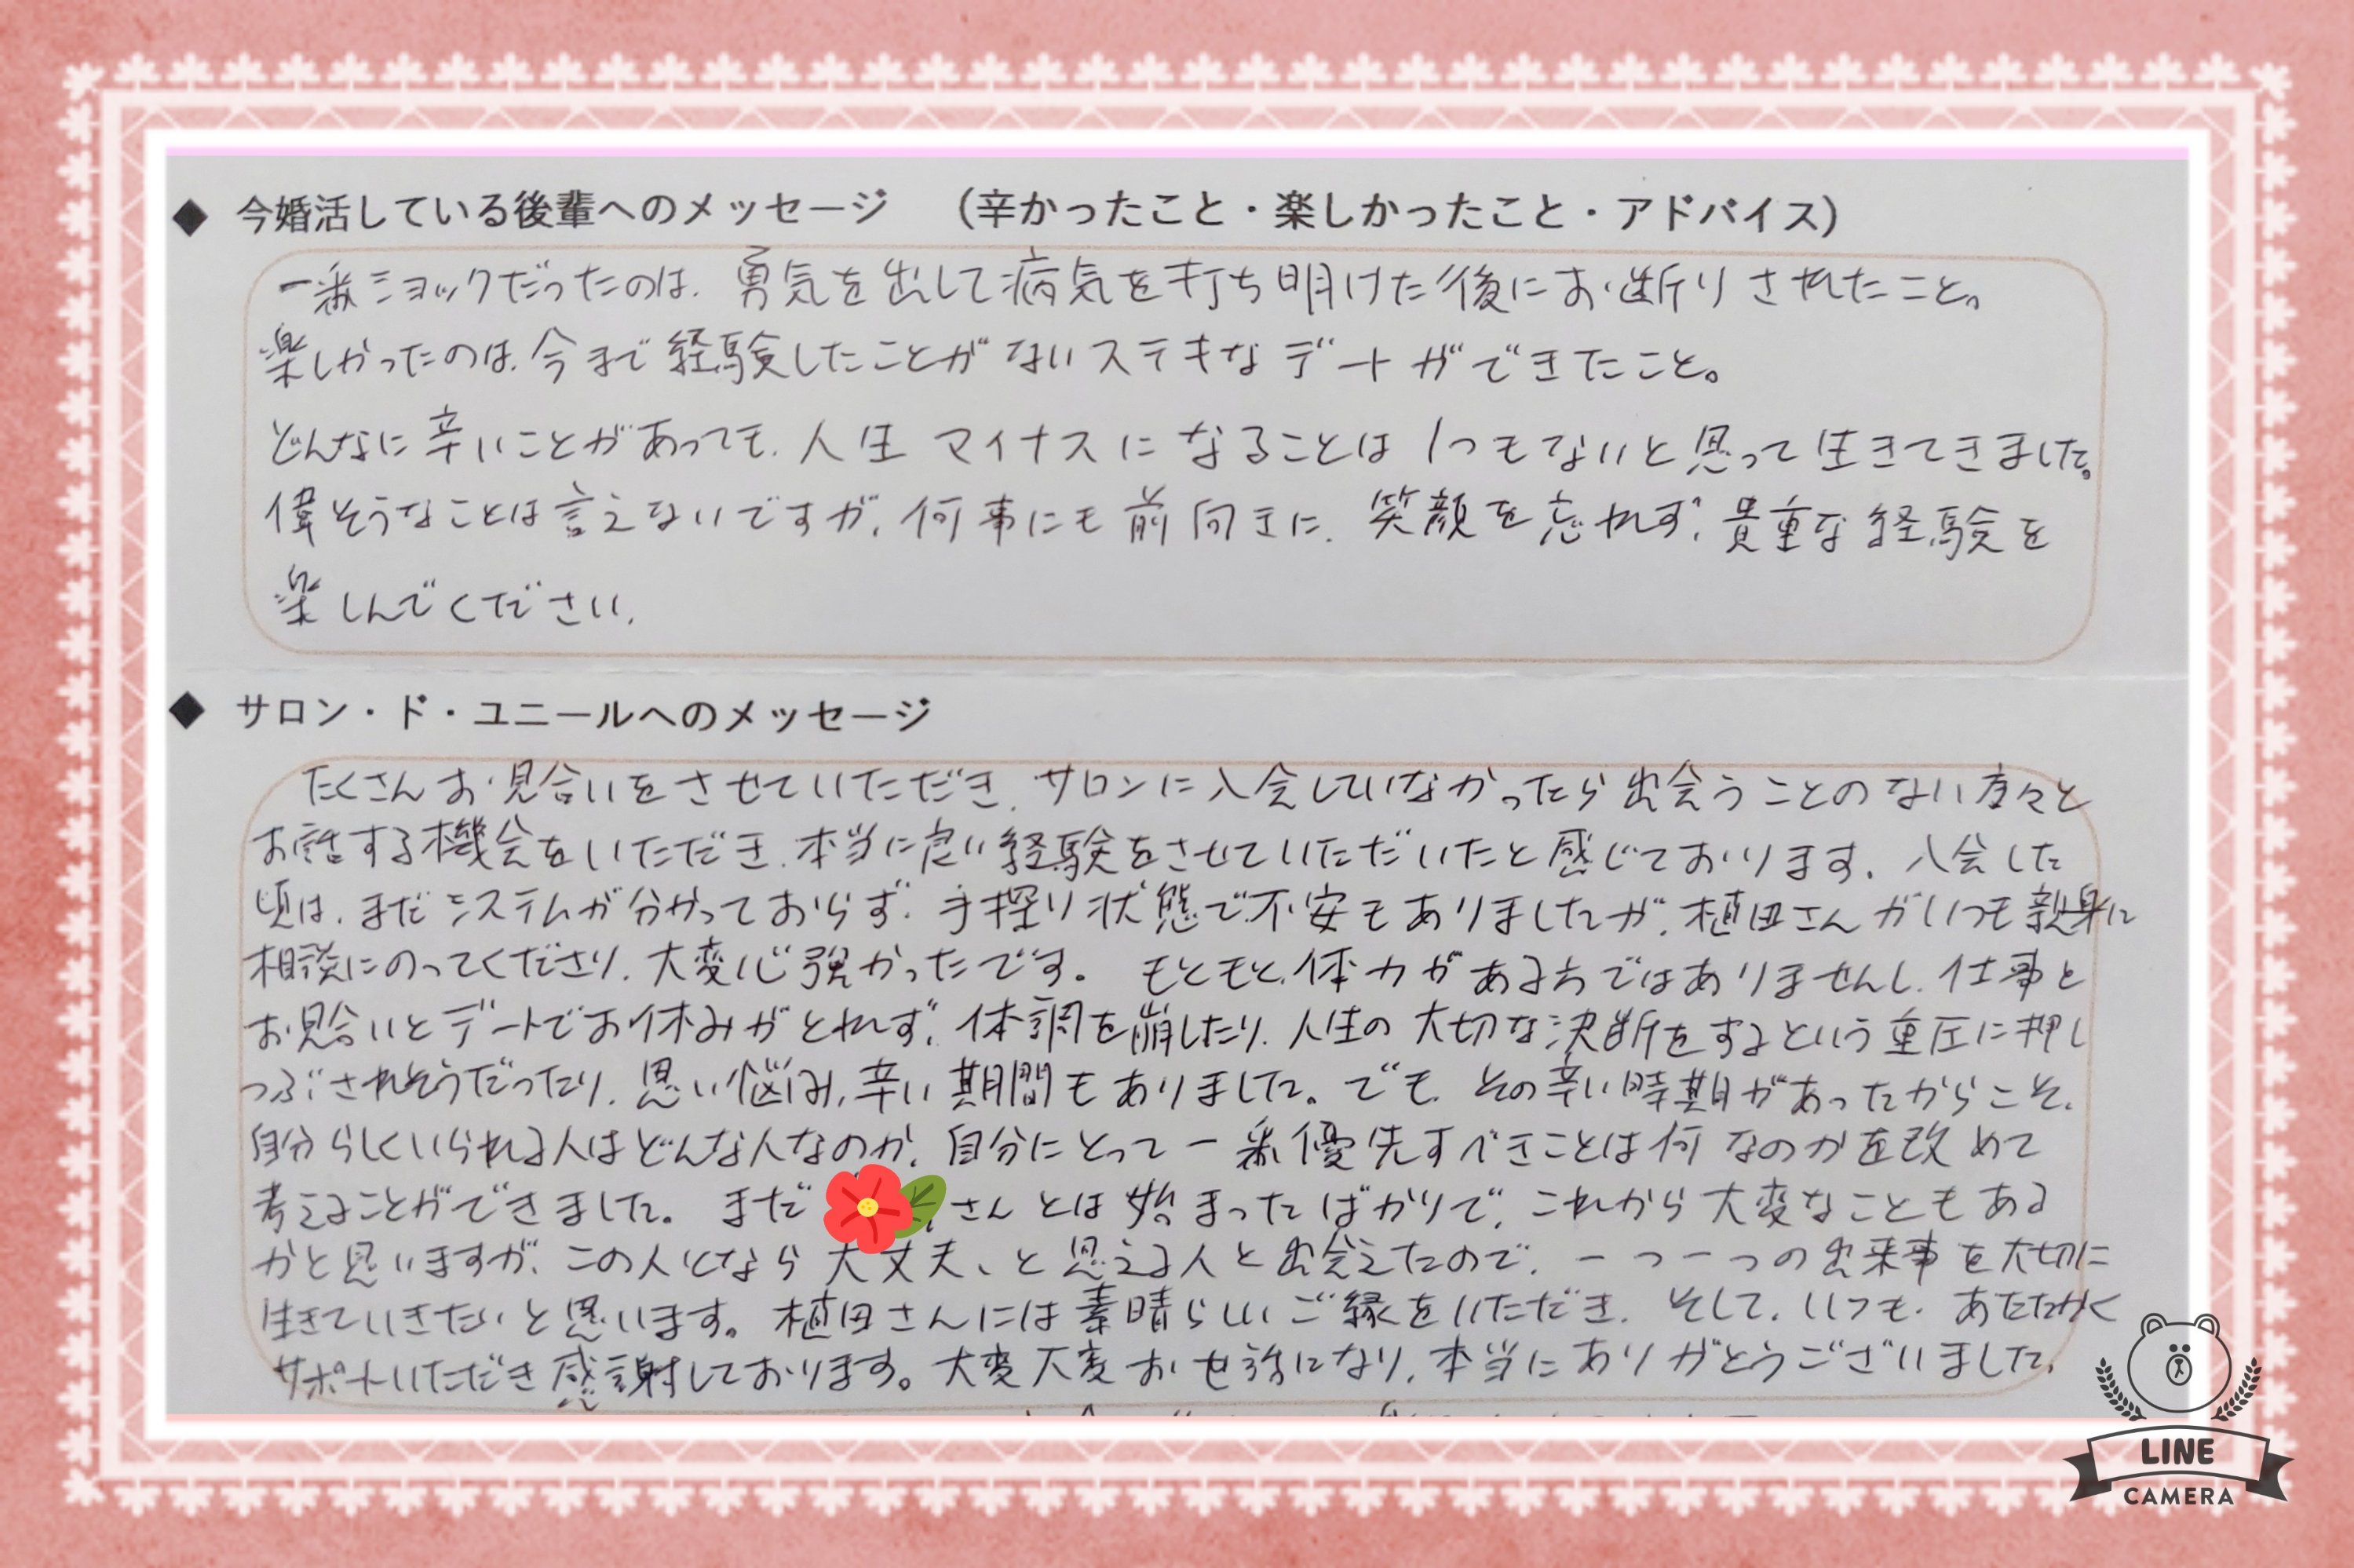 ◆ 今婚活している後輩へのメッセージ (辛かったこと・楽しかったこと・アドバイス)
一番ショックだったのは、勇気を出して病気を打ち明けた後にお断りされたこと。
楽しかったのは、今まで経験したことがないステキなデートができたこと。
どんなに辛いことがあっても、人生マイナスになることは1つもないと思って生きてきました。
偉そうなことは言えないですが、何事にも前向きに、笑顔を忘れず、貴重な経験を
楽しんでください。
◆ サロン・ド・ユニールへのメッセージ
たくさんお見合いをさせていただき、サロンに入会していなかったら出会うことのない方々と
お話する機会をいただき、本当に良い経験をさせていただいたと感じております。入会した
頃は、まだシステムが分かっておらず、手探り状態で不安もありましたが、植田さんがいつも親身に
相談にのってくださり、大変心強かったです。もともと、体力がある方ではありませんし、仕事と
お見合いとデートでお休みがとれず、体調を崩したり、人生の大切な決断をするという重圧に押し
つぶされそうだったり、思い悩み、辛い期間もありました。でも、その辛い時期があったからこそ、
自分らしくいられる人はどんな人なのか、自分にとって一番優先すべきことは何なのかを改めて
考えることができました。まだ さんとは始まったばかりで、これから大変なこともある
かと思いますが、この人となら大丈夫、と思える人と出会えたので、一つ一つの出来事を大切に
生きていきたいと思います。植田さんには素晴らしいご縁をいただき、そして、いつも、あたたかく
サポートいただき感謝しております。大変大変お世話になり、本当にありがとうございました。
LINE
CAMERA